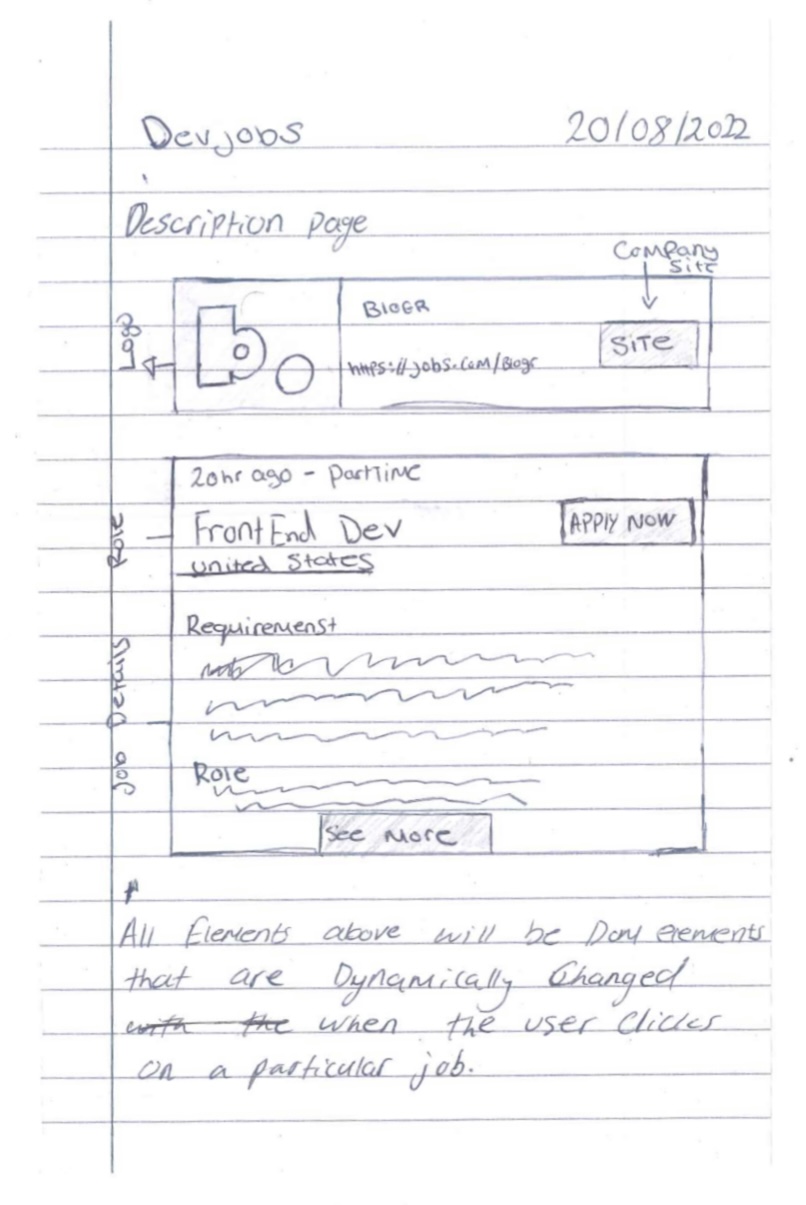 Devjobs 20/08/2022
Description page
Company
Site
Logo
BlOGR
SiTE
https://jobs.com/Blogr
20hr ago - PartTime
Role
FrontEnd Dev
APPlY NOW
united States
Requiremenst
Job Details
Role
See More
All Elements above will be Dom elements
that are Dynamically Changed
with the when the user Clicks
on a particular job.